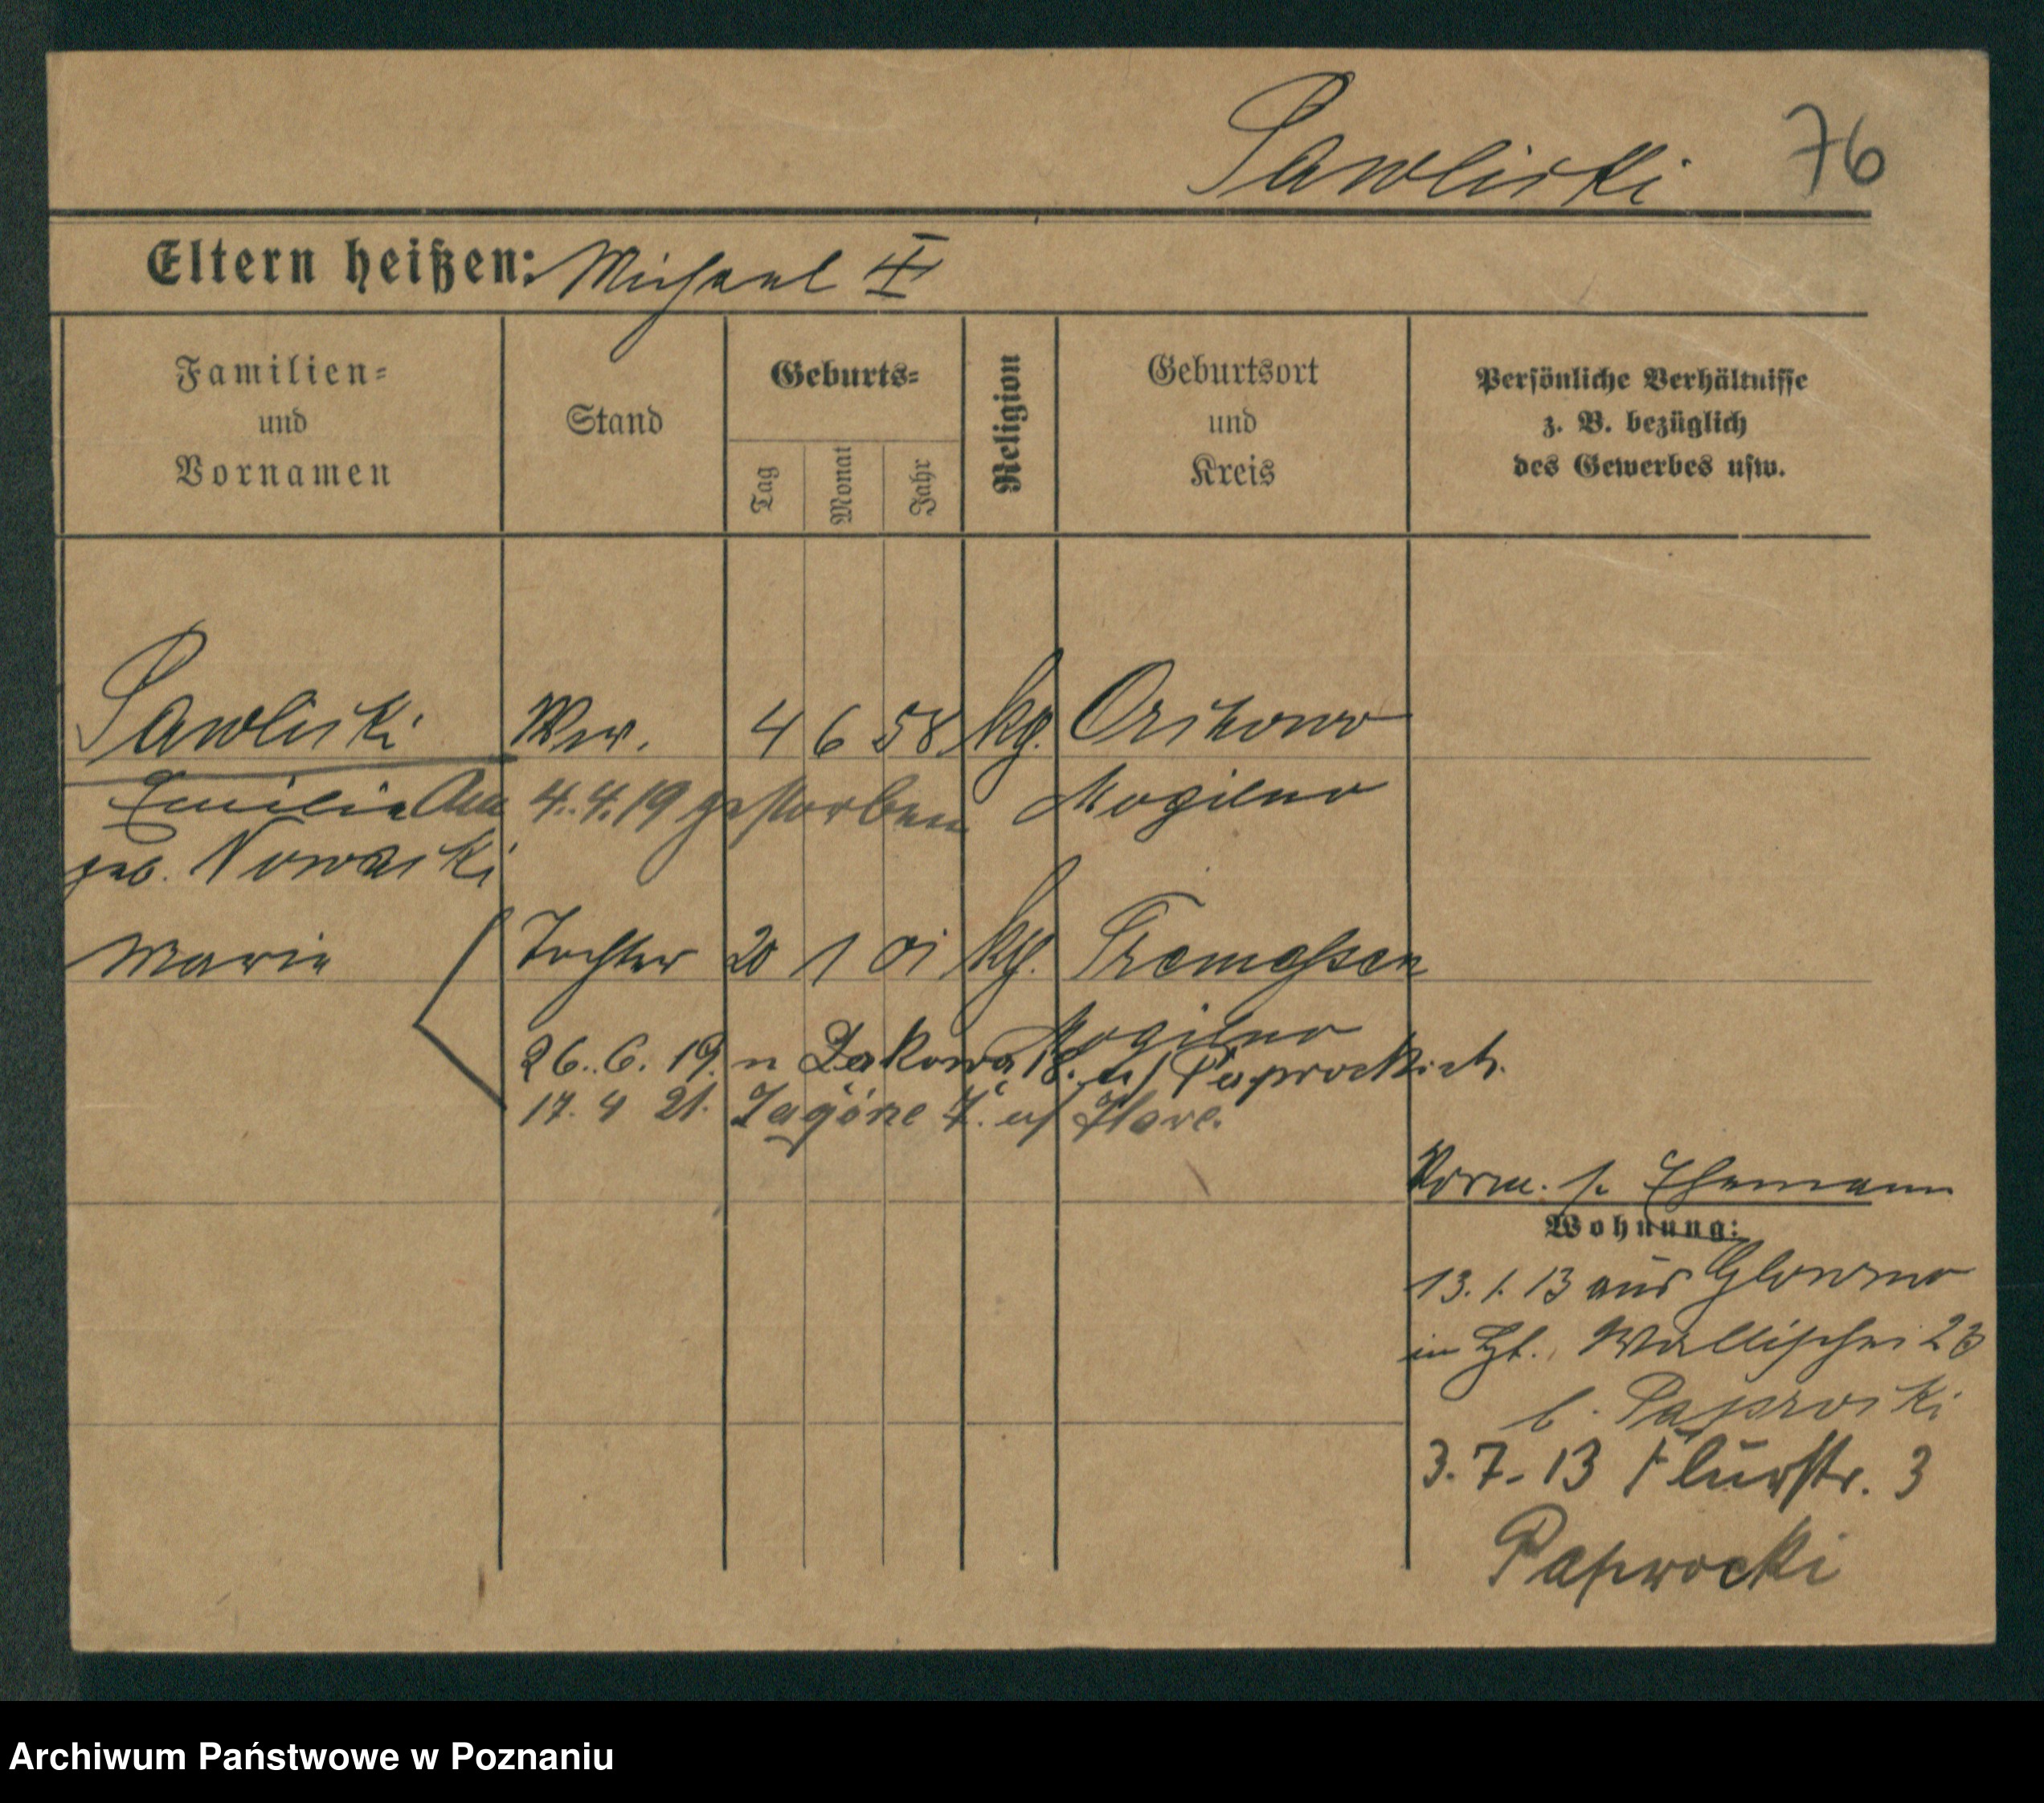 Pawlicki 76
Eltern heißen: Michael II
Familien=
und
Vornamen
Stand
Geburts=
Tag
Monat
Jahr
Religion
Geburtsort
und
Kreis
Persönliche Verhältnisse
z. B. bezüglich
des Gewerbes usw.
Pawlicki Wwe. 4 6 58 kg. Orchowo
Emilie Am 4.4.19 gestorben Mogilno
geb. Nowacki
Marie Tochter 20 1 01 kg. Tremessen
Mogilno
26. 6. 19. n Łąkowa 18. u/ Paprockich.
17. 4 21. Zagórze 7. u/
Verm. s. Ehemann
Wohnung:
13.1.13 aus Glowno
in Zg. Wallischei 23
b. Paprocki
3. 7. 13 Flurstr. 3
Paprocki
Archiwum Państwowe w Poznaniu